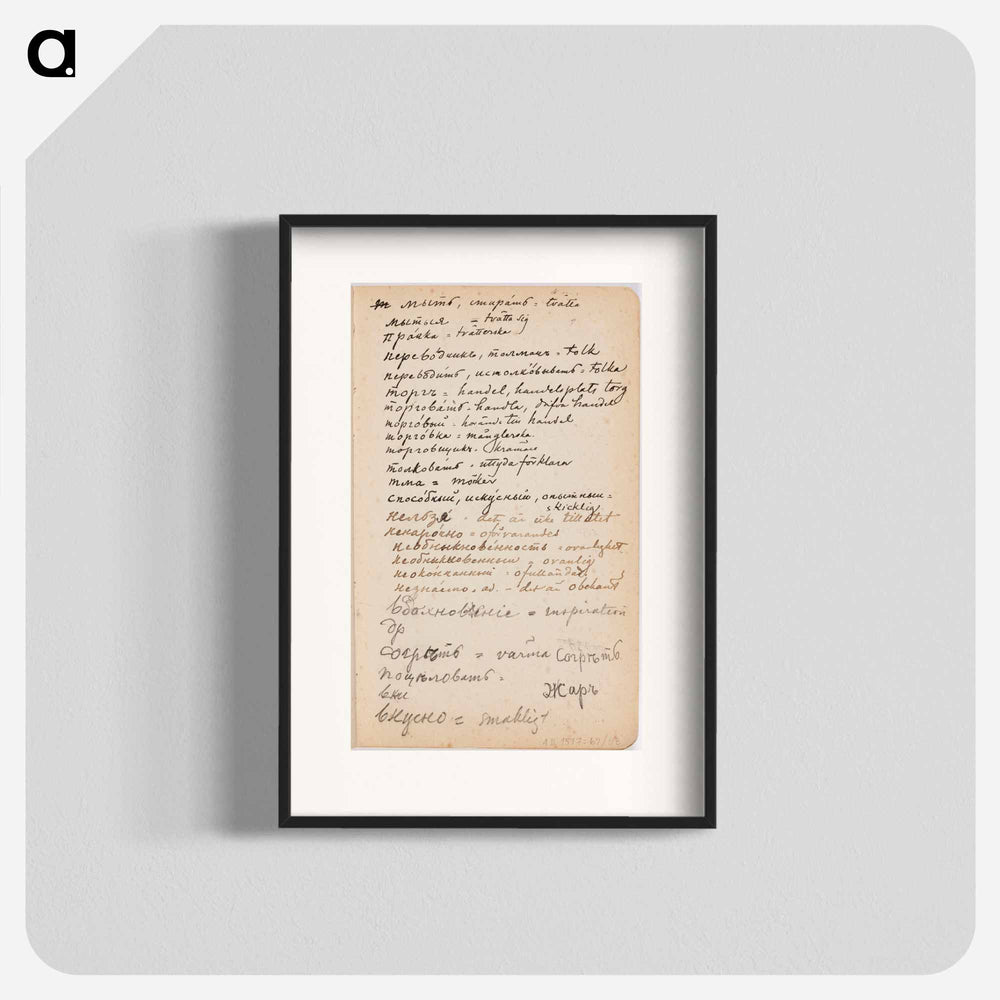 a.
мыть, стирать = tvätta
мыться = tvätta sig
прачка = tvätterska
переводчикъ, толмачъ = tolk
переводить, истолковывать = tolka
торгъ = handel, handelsplats torg
торговать = handla, drifva handel
торговый = hörande till handel
торговка = månglerska.
торговщикъ. krämare
толковать. uttyda förklara
тма = mörker
способный, искусный, опытный =
skicklig
нельзя. det är icke tillåtet
ненарочно = oförvarandes
необыкновенность = ovanlighet
необыкновенный = ovanlig
неоконченный = ofulländad
ad. - det är obekant
вдохновеніе = inspiration
др
согрѣть = värma Согрѣть
поцѣловать =
вки Жаръ
вкусно = smakligt